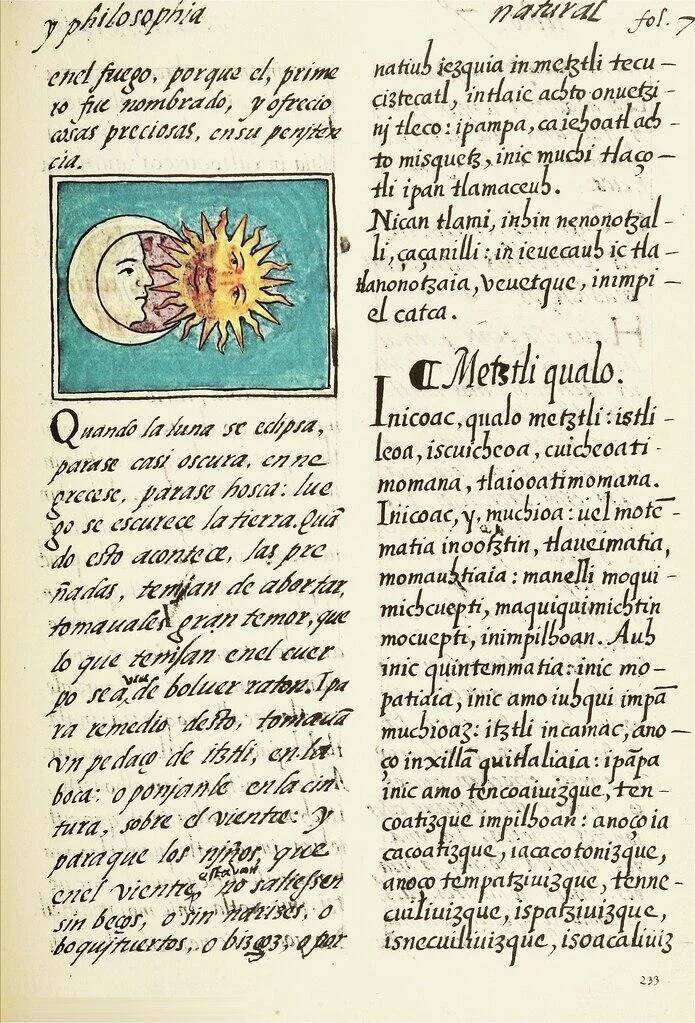 y philosophia
natural
fol. 7
enel fuego, porque el, prime
ro fue nombrado, y ofrecio
cosas preciosas, ensu peniten
cia.
Quando la luna se eclipsa,
parase casi oscura, enne
grecese, parase hosca: lue
go se escurece la tierra. Quã
do esto acontece, las pre
ñadas, temjan de abortar,
tomauales gran temor, que
lo que temjan enel cuer
po se aviã de boluer raton. I pa
ra remedio desto, tomauã
vn pedaço de itztli, en la
boca: o ponjanle en la cin
tura, sobre el vientre: y
para que los njños, que
enel vientre estavan no saliessen
sin beços, o sin narizes, o
boquituertos, o bizcos, o por
natiuh iezquia in metztli tecu —
çiztecatl, intlaic achto onuetzi -
nj tleco: ipampa, ca iehoatl ach -
to misquetz, inic muchi tlaço —
tli ipan tlamaceuh.
Nican tlami, inhin nenonotzal -
li, çaçanilli: in ieuecauh ic tla —
tlanonotzaia, veuetque, inimpi —
el catca.
¶ Metztli qualo.
Inicoac, qualo metztli: istli -
leoa, iscuicheoa, cuicheoati -
momana, tlaiooatimomana.
Inicoac, y, muchioa: uel motẽ -
matia inootztin, tlaueimatia,
momauhtiaia: manelli moqui -
michcuepti, maquiquimichtin
mocuepti, inimpilhoan. Auh
inic quintemmatia: inic mo —
patiaia, inic amo iuhqui impã
muchioaz: itztli incamac, ano —
ço inxillã quitlaliaia: ipãpa
inic amo tencoaiuizque, ten —
coatizque impilhoan: anoço ia
cacoatizque, iacacotonizque,
anoço tempatziuizque, tenne -
cuiliuizque, ispatziuizque,
isnecuiliuizque, isoacaliuiz
233